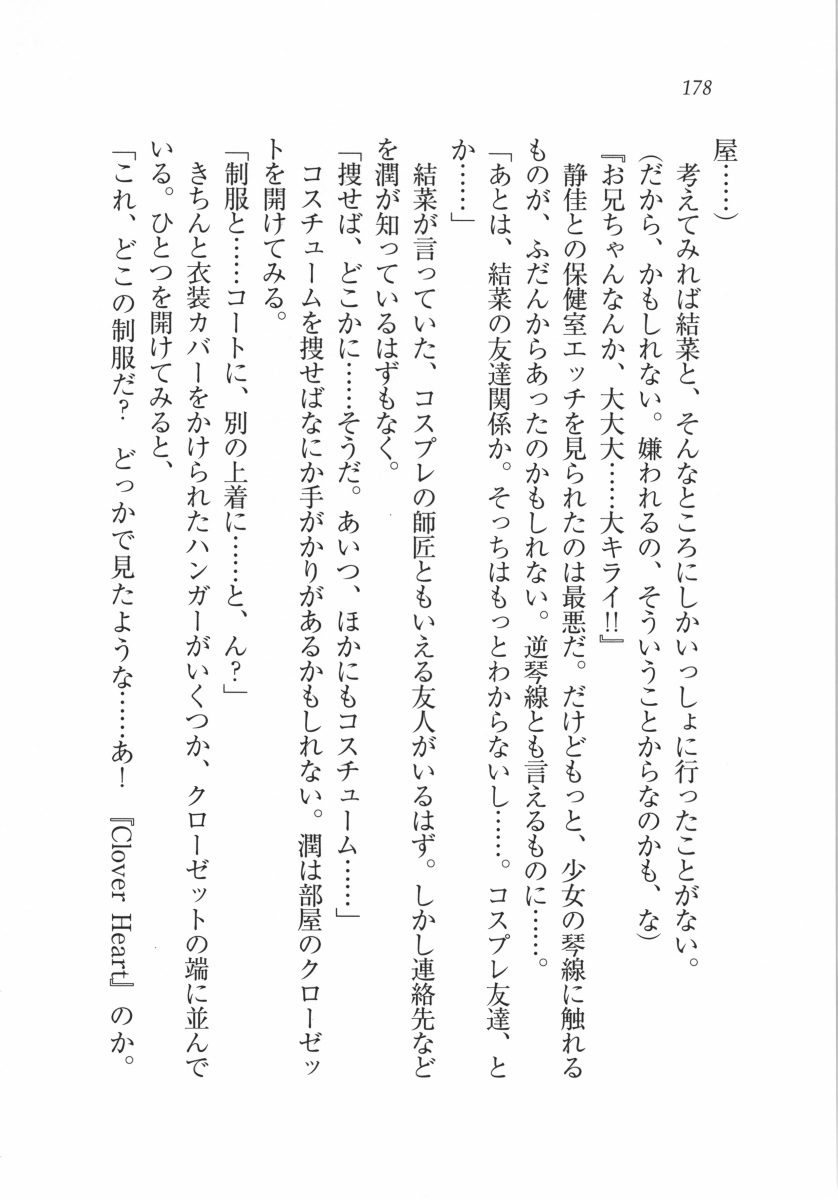 178
屋……）
　考えてみれば結菜と、そんなところにしかいっしょに行ったことがない。
（だから、かもしれない。嫌われるの、そういうことからなのかも、な）
『お兄ちゃんなんか、大大大……大キライ!!』
　静佳との保健室エッチを見られたのは最悪だ。だけどもっと、少女の琴線に触れる
ものが、ふだんからあったのかもしれない。逆琴線とも言えるものに……。
「あとは、結菜の友達関係か。そっちはもっとわからないし……。コスプレ友達、と
か……」
　結菜が言っていた、コスプレの師匠ともいえる友人がいるはず。しかし連絡先など
を潤が知っているはずもなく。
「捜せば、どこかに……そうだ。あいつ、ほかにもコスチューム……」
　コスチュームを捜せばなにか手がかりがあるかもしれない。潤は部屋のクローゼッ
トを開けてみる。
「制服と……コートに、別の上着に……と、ん？」
　きちんと衣装カバーをかけられたハンガーがいくつか、クローゼットの端に並んで
いる。ひとつを開けてみると、
「これ、どこの制服だ？　どっかで見たような……あ！　『Clover Heart』のか。